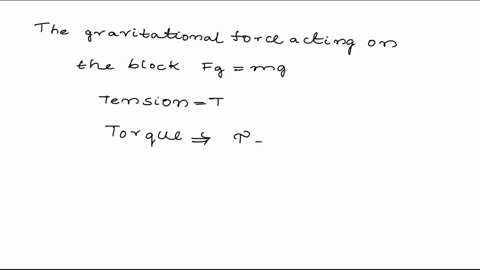 The gravitational force acting on
the block Fg = mg
Tension = T
Torque ⇒ τ -